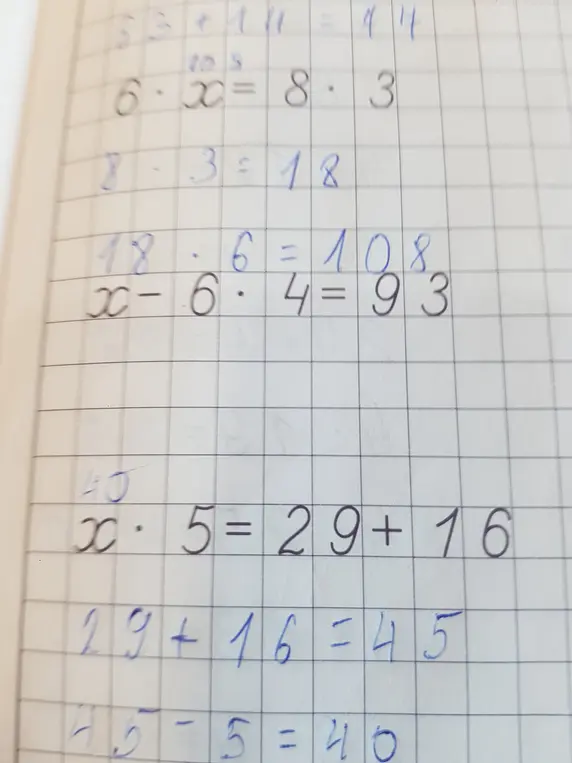 53 + 14 = 14
108
6 · x = 8 · 3
8 · 3 = 18
18 · 6 = 108
x - 6 · 4 = 93
40
x · 5 = 29 + 16
29 + 16 = 45
45 - 5 = 40